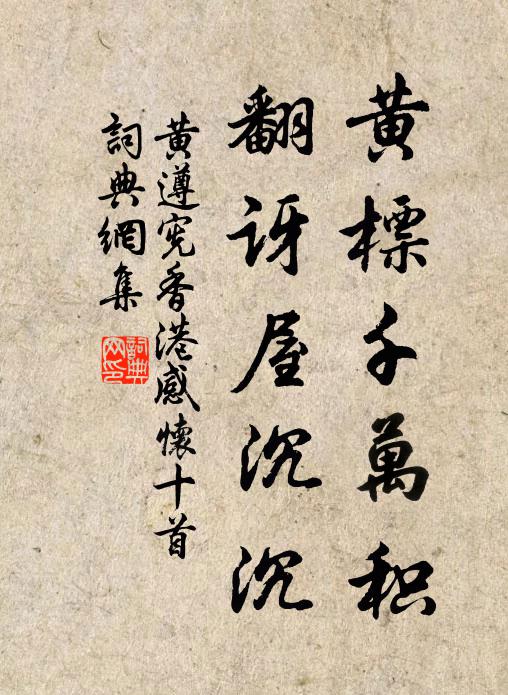 黄標千萬积
翻訝屋沉沉
黄遵宪香港感懷十首
詞典網集
詞典
网印